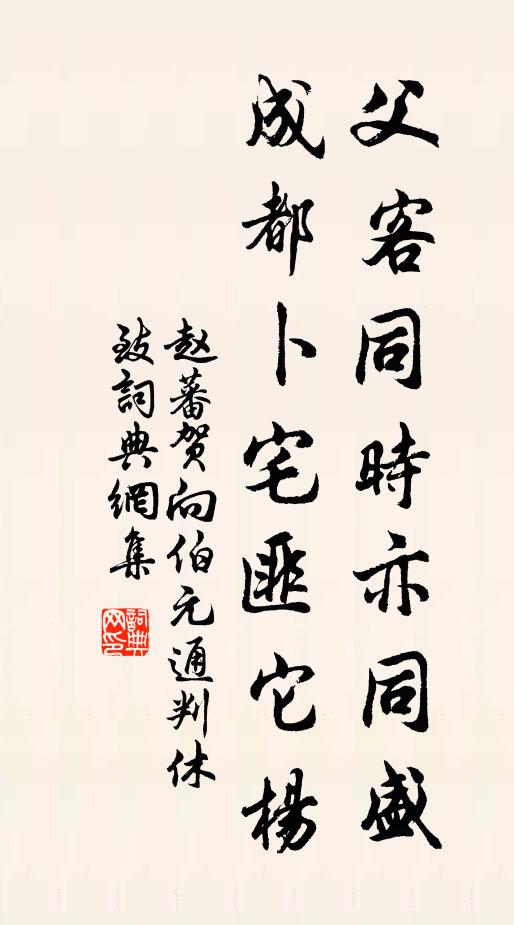 父客同時亦同盛
成都卜宅匪它楊
赵蕃贺向伯元通判休
致詞典網集
詞典網印